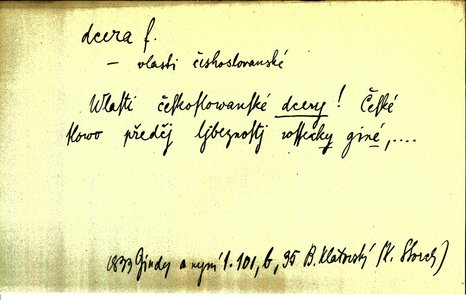 dcera f.
– vlasti českoslovanské
Wlasti českoslowanské dcery! České
slowo předčj ljbeznostj wssecky giné,....
1833 Gindy a nynj 1.101, b, 95 B. Klatovský (K. Storch)